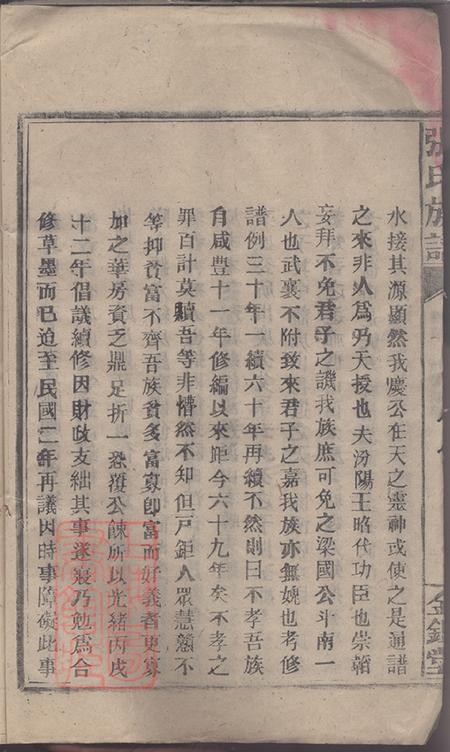 張氏族譜
水接其源顯然我慶公在天之靈神或使之是通譜
之來非人為乃天授也夫汾陽王昭代功臣也崇韜
妄拜不免君子之譏我族庶可免之梁國公斗南一
人也武襄不附致來君子之嘉我族亦無媿也考修
譜例三十年一續六十年再續不然則曰不孝吾族
自咸豐十一年修編以來距今六十九年矣不孝之
罪百計莫贖吾等非懵然不知但戸鉅人眾慧憨不
等抑貧富不齊吾族貧多富寡即富而好義者更寡
加之華房資乏鼎足折一恐覆公餗所以光緒丙戌
十二年倡議續修因財政支絀其事遂寢乃勉為合
修草墨而已迨至民國二年再議因時事障礙此事